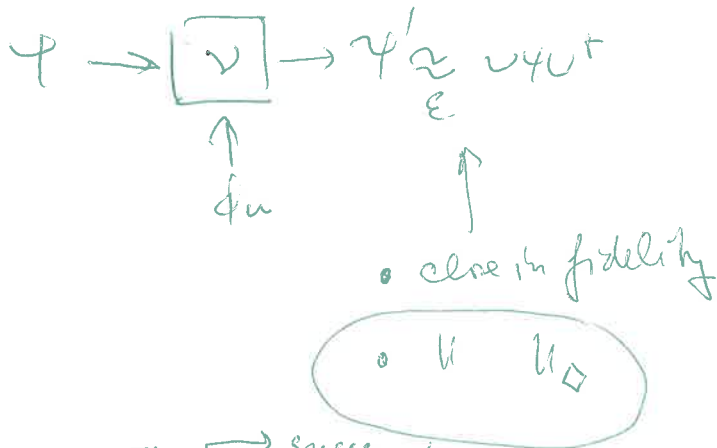 ψ → ν → ψ' ≈ε νψν†
ϕu
• close in fidelity
• || ||◇